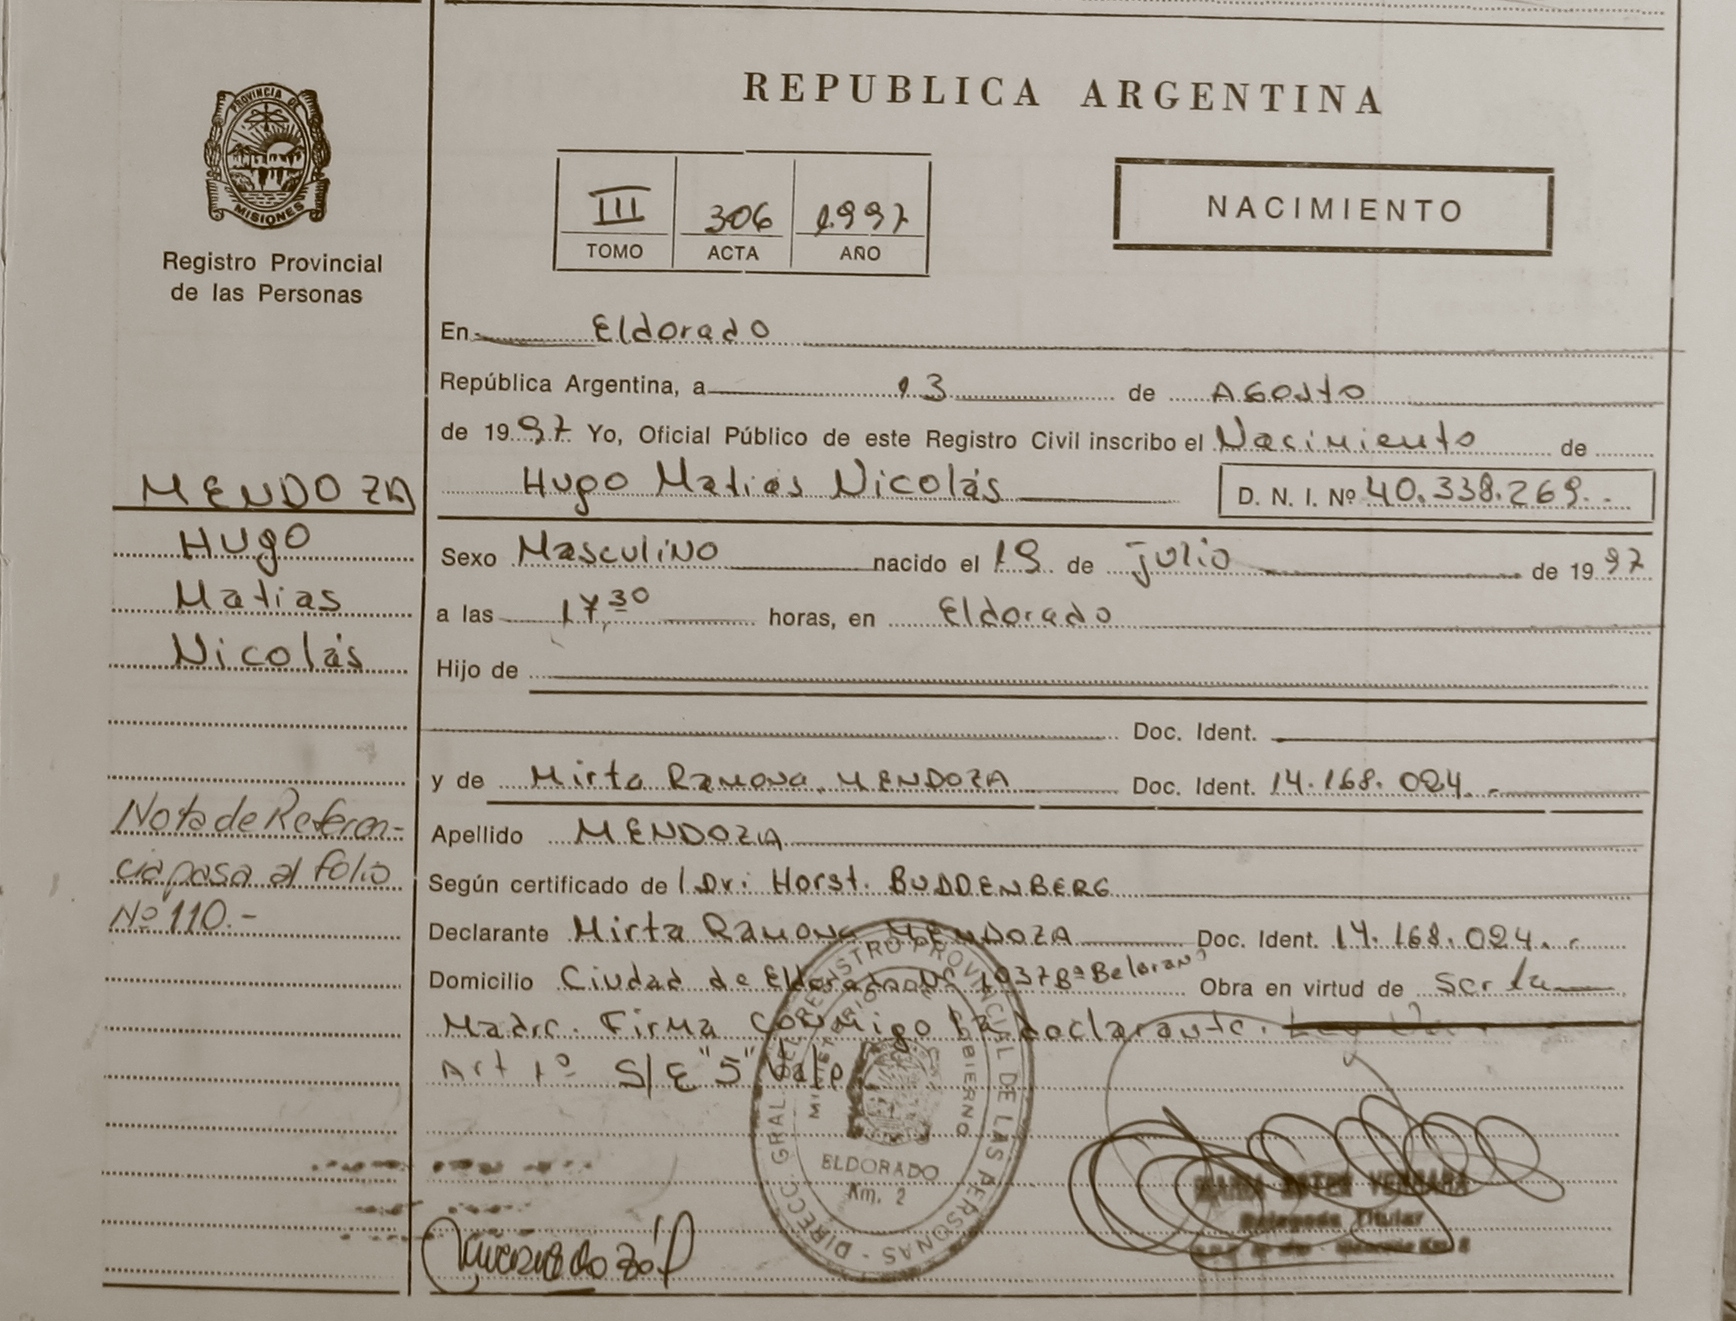 REPUBLICA ARGENTINA
PROVINCIA DE
MISIONES
Registro Provincial
de las Personas
III 306 1997
TOMO ACTA AÑO
NACIMIENTO
En Eldorado
República Argentina, a 13 de Agosto
de 1997 Yo, Oficial Público de este Registro Civil inscribo el Nacimiento de
Hugo Matias Nicolás D. N. I. Nº 40.338.269.
Sexo Masculino nacido el 19 de julio de 1997
a las 17,30 horas, en Eldorado
Hijo de
Doc. Ident.
y de Mirta Ramona MENDOZA Doc. Ident. 14.168.024.-
Apellido MENDOZA
Según certificado de Dr. Horst. BUDDENBERG
Declarante Mirta Ramona MENDOZA Doc. Ident. 14.168.024.
Domicilio Ciudad de Eldorado 1037 Bº Belgrano Obra en virtud de Ser la
Madre. Firma conmigo la declarante.
Art 1º S/E "S" Vale
MENDOZA
Hugo
Matias
Nicolás
Nota de Referen-
cia pasa al folio
Nº 110.-
DIRECC. GRAL. DEL REGISTRO PROVINCIAL DE LAS PERSONAS
MINISTERIO DE GOBIERNO
ELDORADO
Km. 2
Delegada Titular